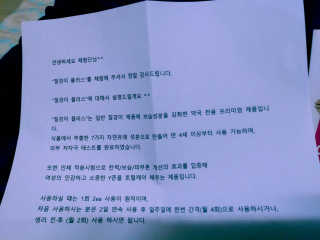 안녕하세요 체험단님^^
"질경이 플러스"를 체험해 주셔서 정말 감사드립니다.
"질경이 플러스"에 대해서 설명드릴게요 ^^
"질경이 플러스"는 일반 질경이 제품에 보습성분을 강화한 약국 전용 프리미엄 제품입니다.
식물에서 추출한 7가지 자연유래 성분으로 만들어 만 4세 이상부터 사용 가능하며,
피부 저자극 테스트를 완료하였습니다.
또한 인체 적용시험으로 탄력/보습/피부톤 개선의 효과를 입증해
여성의 민감하고 소중한 Y존을 토탈케어 해주는 제품입니다.
사용하실 때는 1회 2ea 사용이 원칙이며,
처음 사용하시는 분은 2일 연속 사용 후 일주일에 한번 간격(월 4회)으로 사용하시거나,
생리 전·후 (월 2회) 사용 하시면 됩니다.